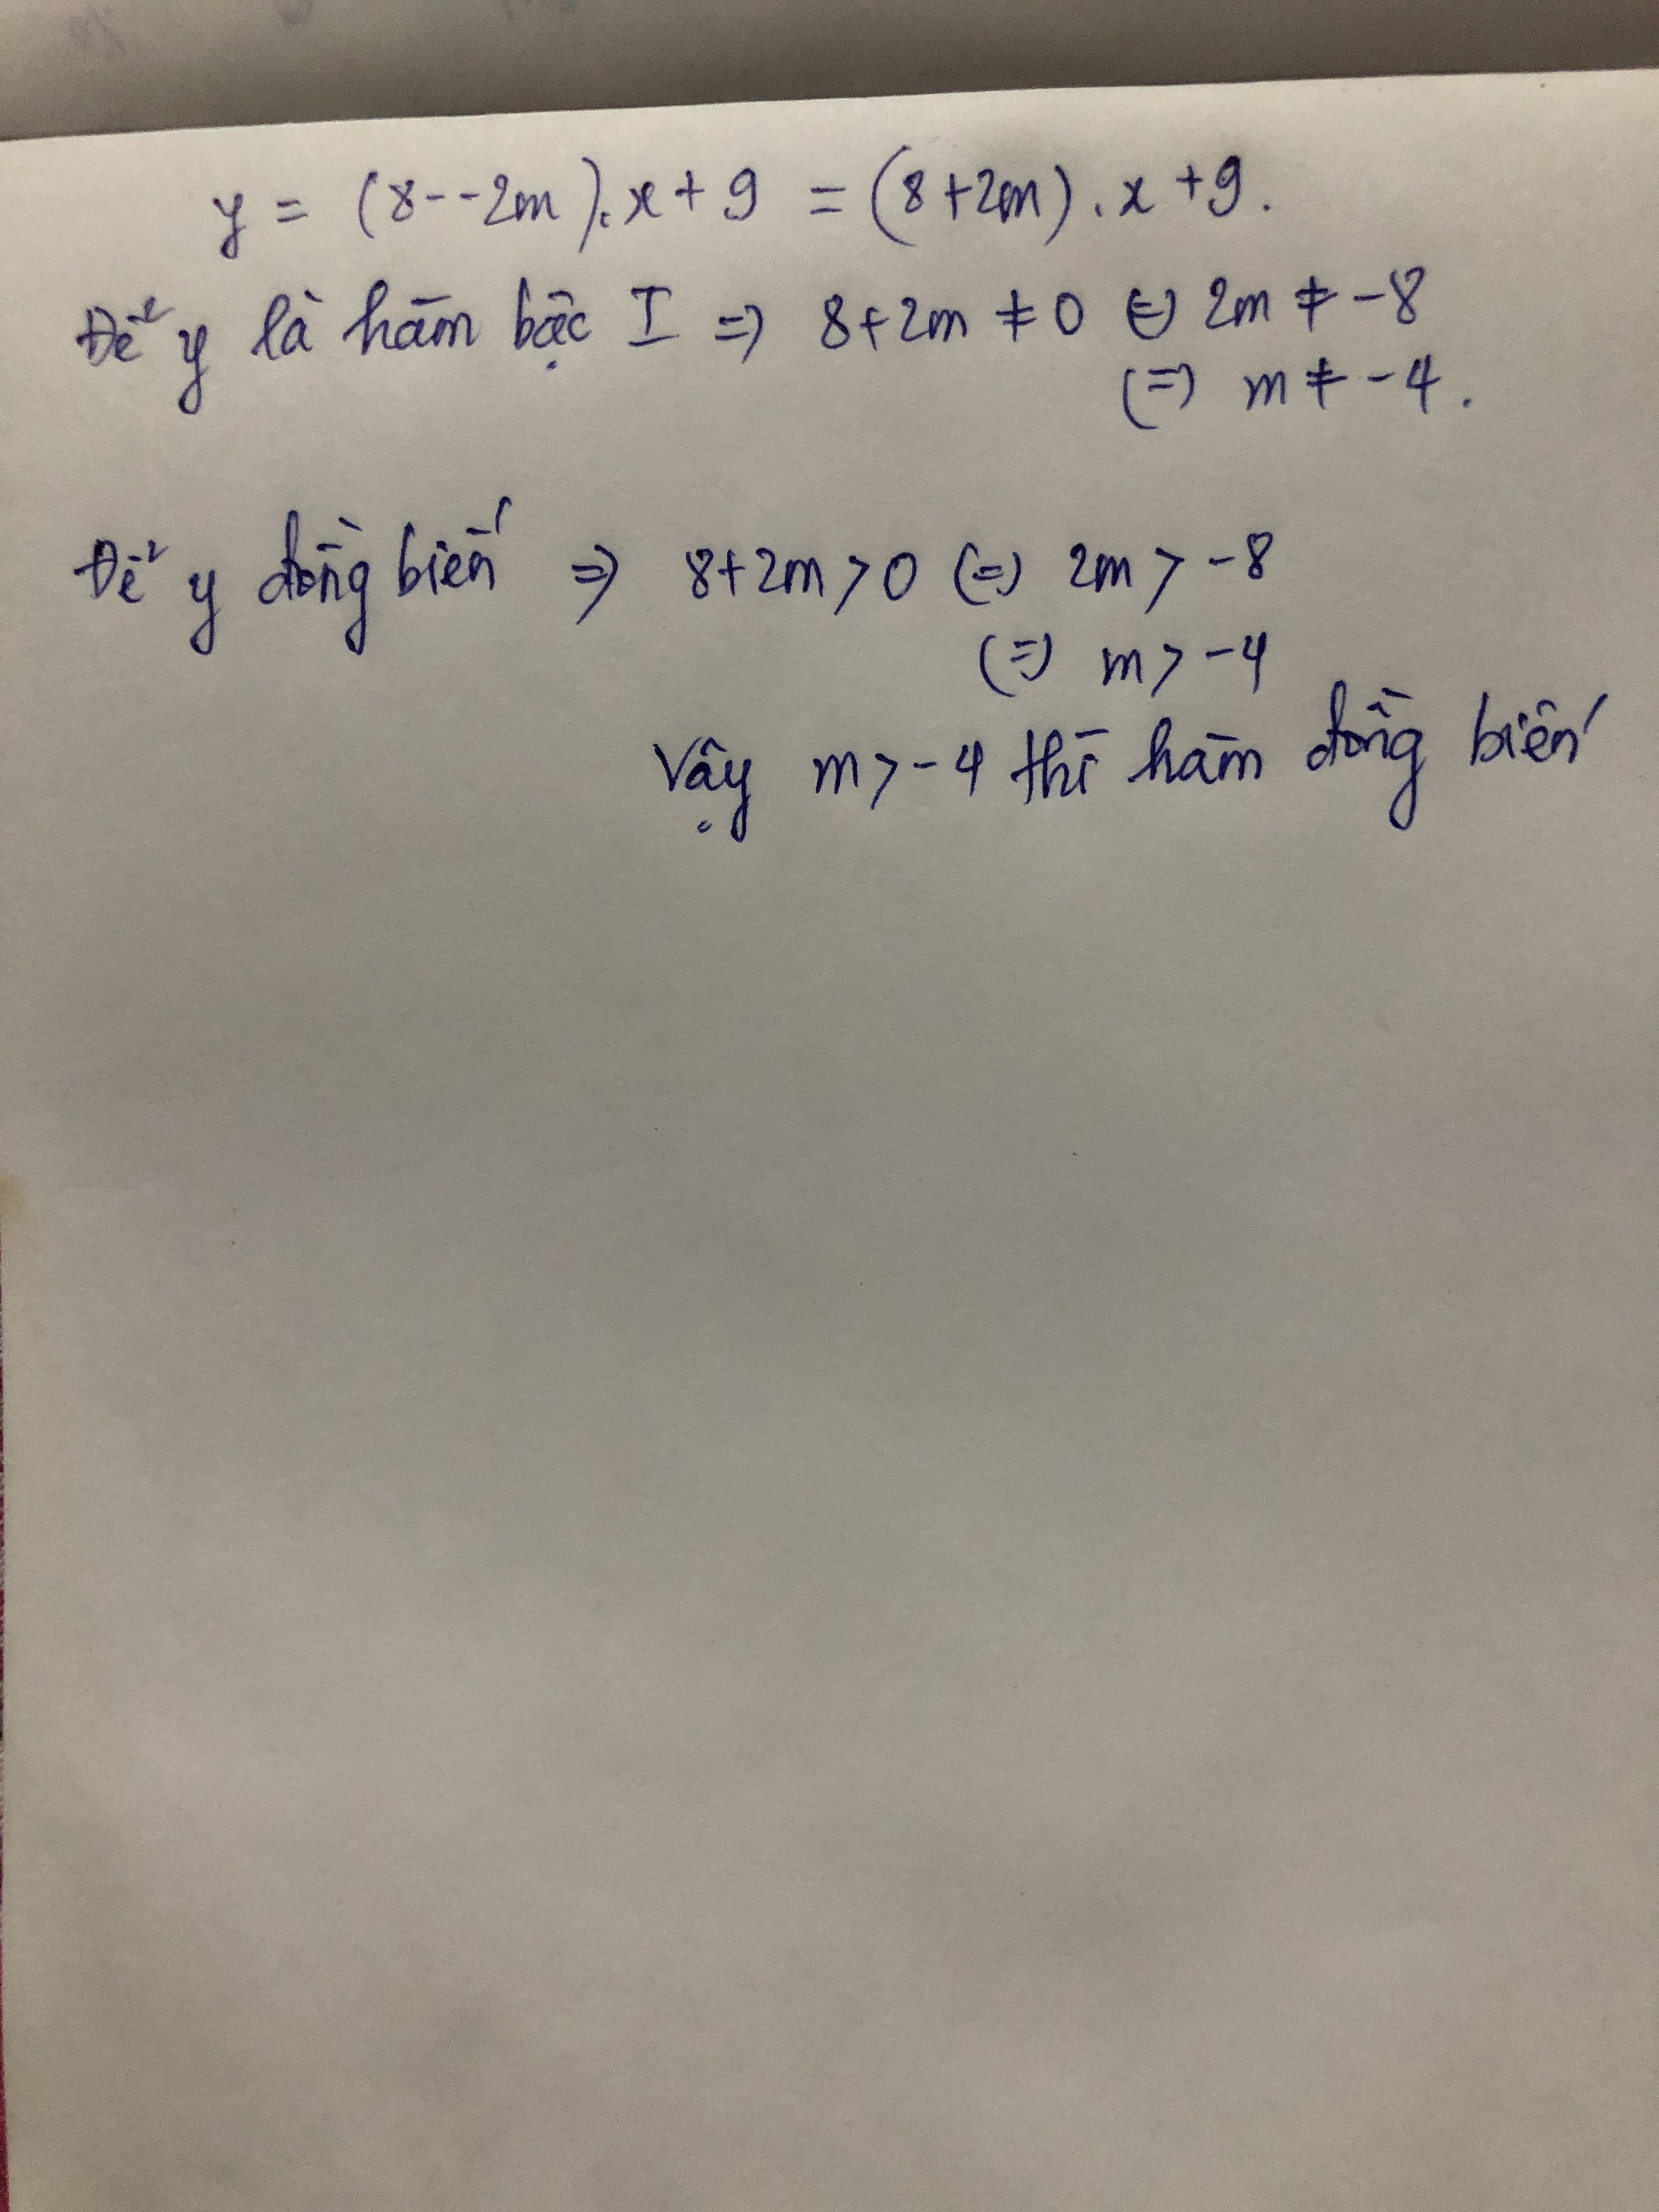 y = (8--2m).x+9 = (8+2m).x+9.
Để y là hàm bậc I => 8+2m ≠ 0 (=) 2m ≠ -8
(=) m ≠ -4.
Để y đồng biến => 8+2m > 0 (=) 2m > -8
(=) m > -4
Vậy m > -4 thì hàm đồng biến